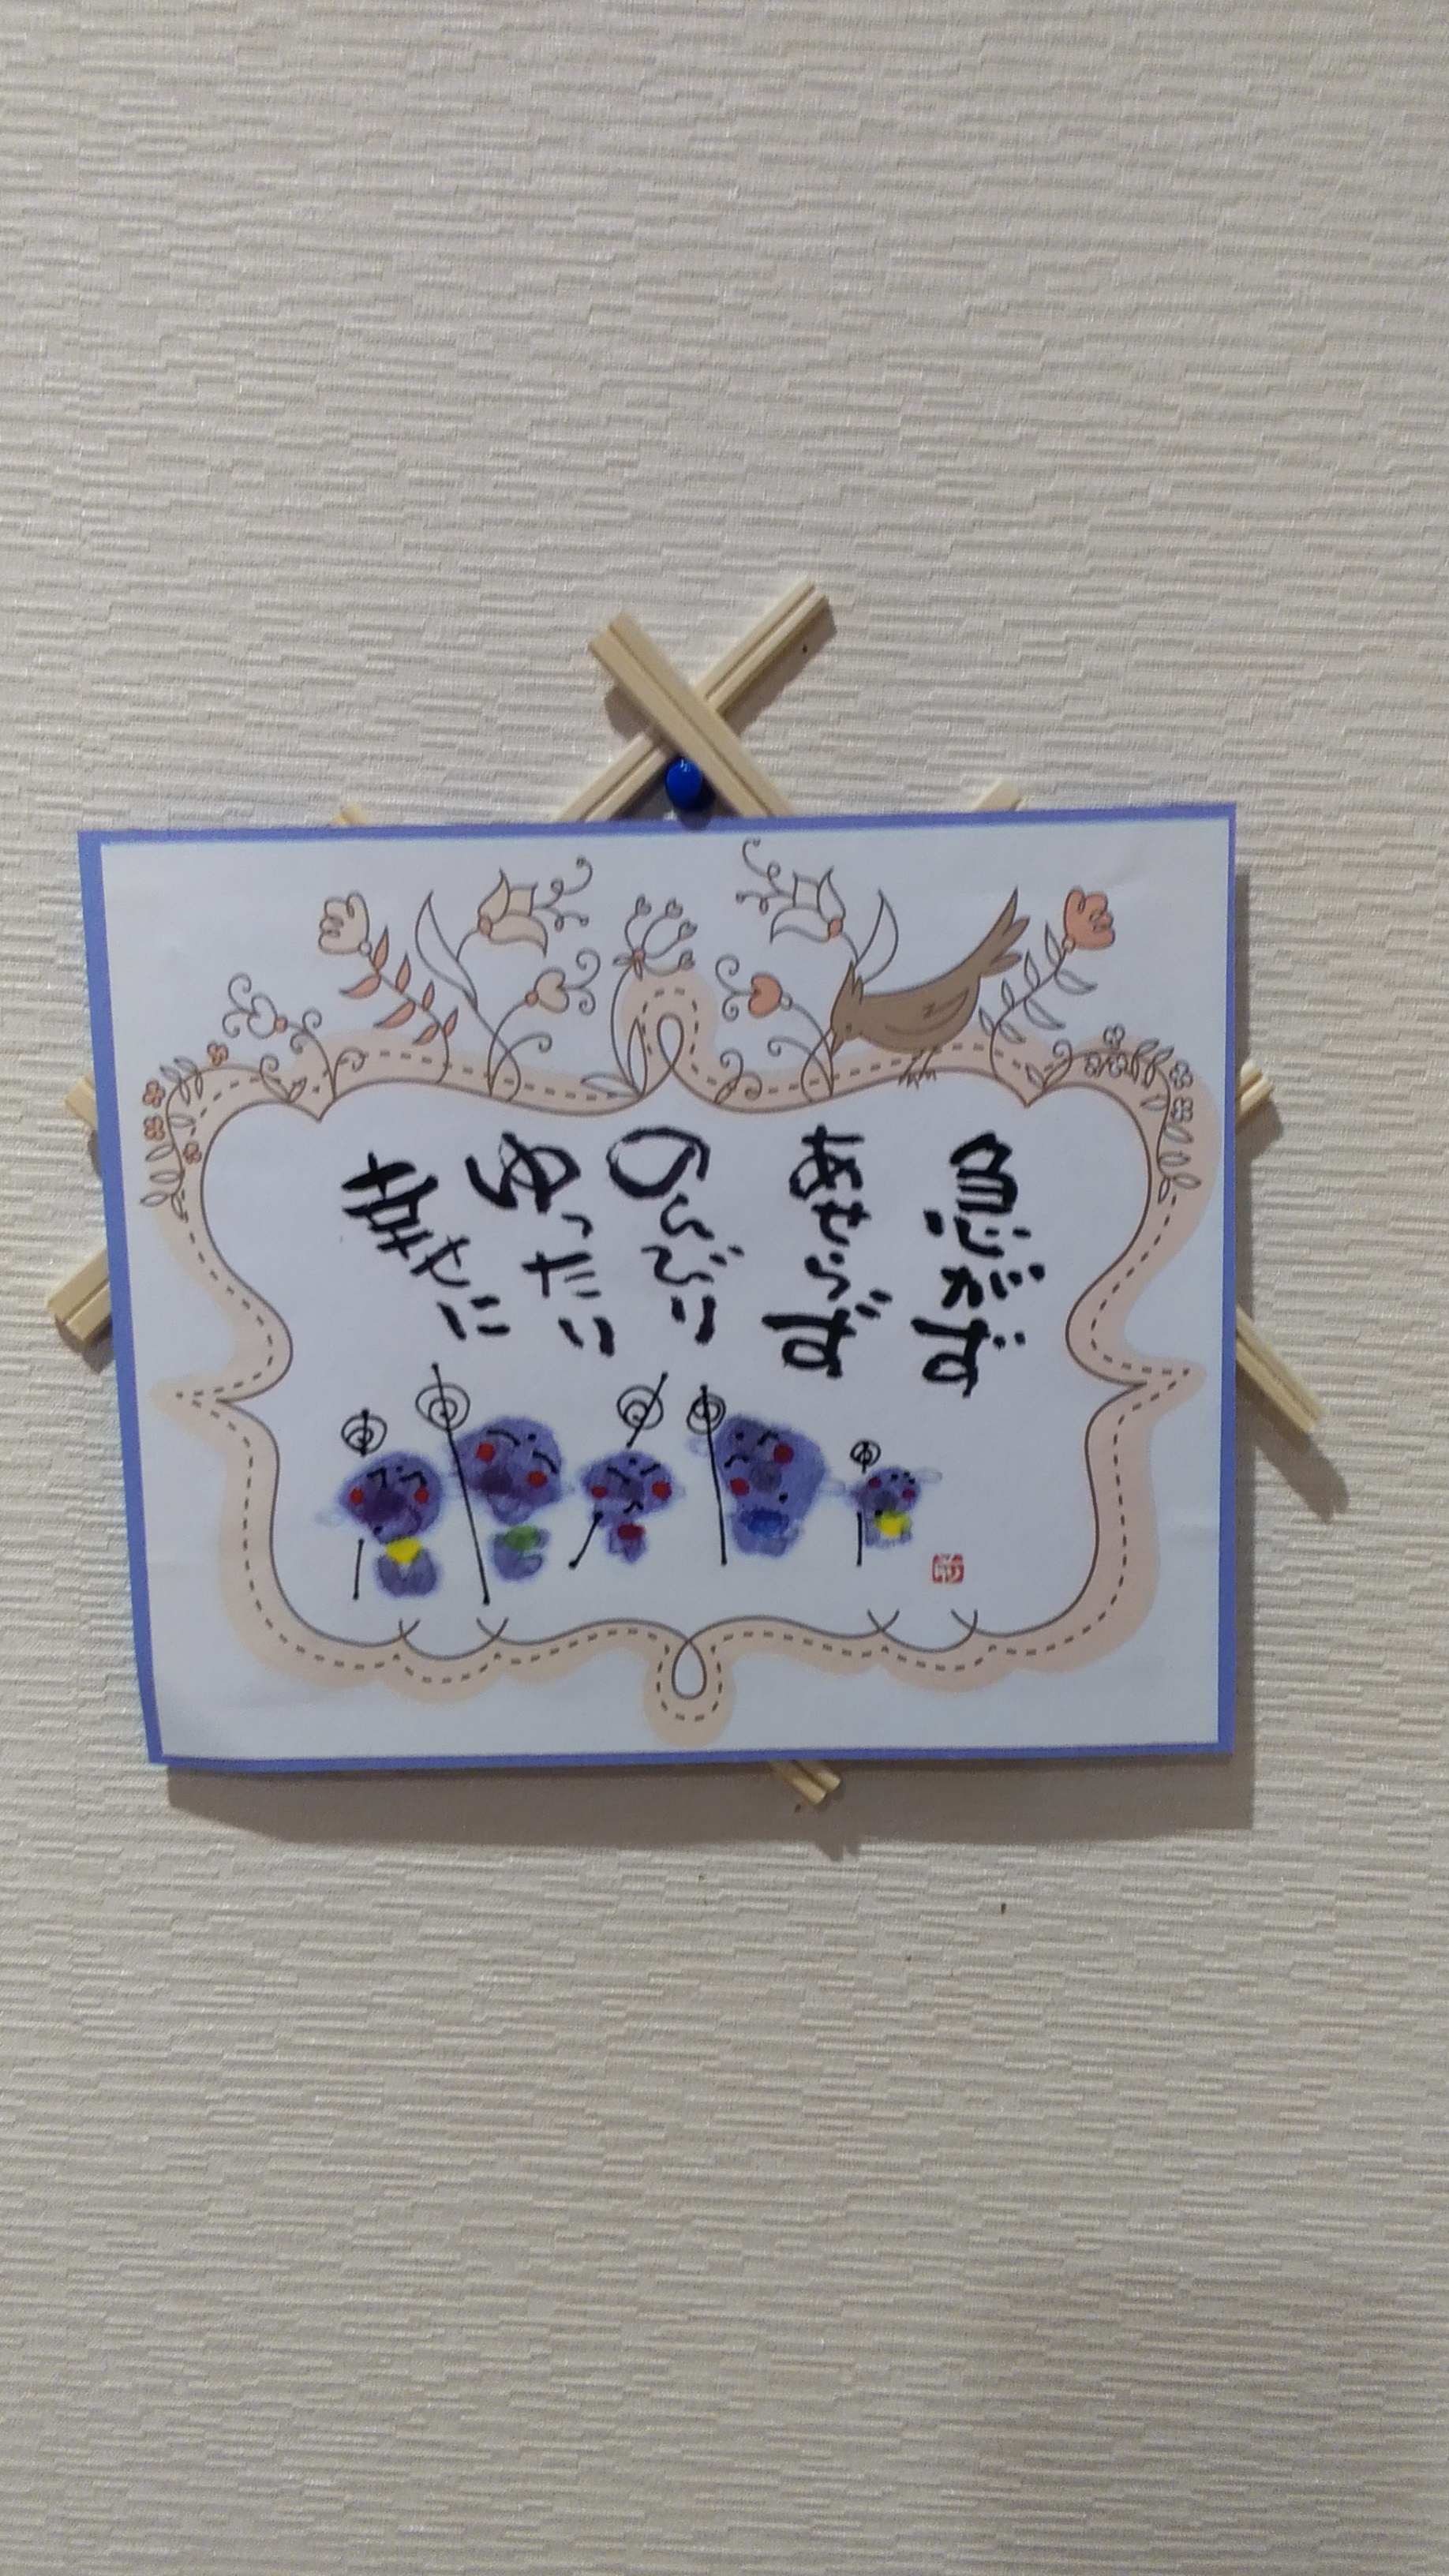 急がず
あせらず
のんびり
ゆったり
幸せに